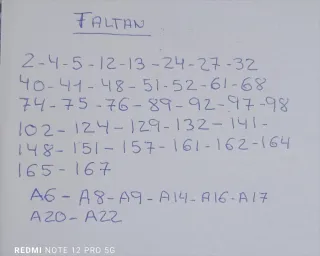 FALTAN
2-4-5-12-13-24-27-32
40-41-48-51-52-61-68
74-75-76-89-92-97-98
102-124-129-132-141-
148-151-157-161-162-164
165-167
A6-A8-A9-A14-A16-A17
A20-A22
REDMI NOTE 12 PRO 5G